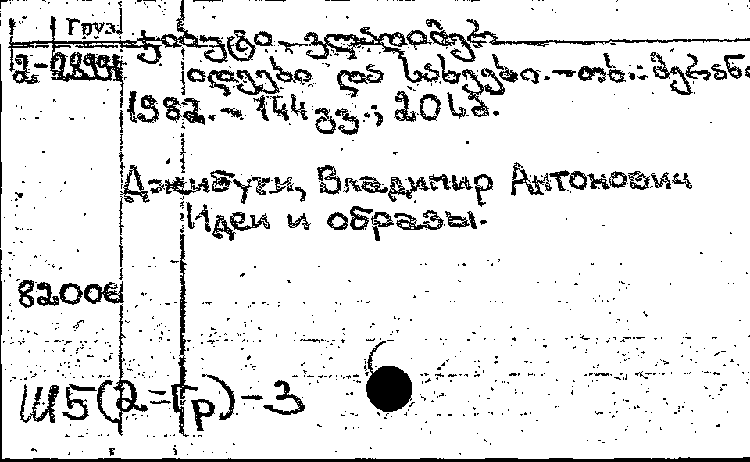 Груз.
ჯიბუტი, ვლადიმერ
2-28991 იდეები და სახეები. – თბ.: მერანი
1982. – 144 გვ.; 20 სმ.
Джибути, Владимир Антонович
Идеи и образы.
82006
Ш5(2=Гр)-3